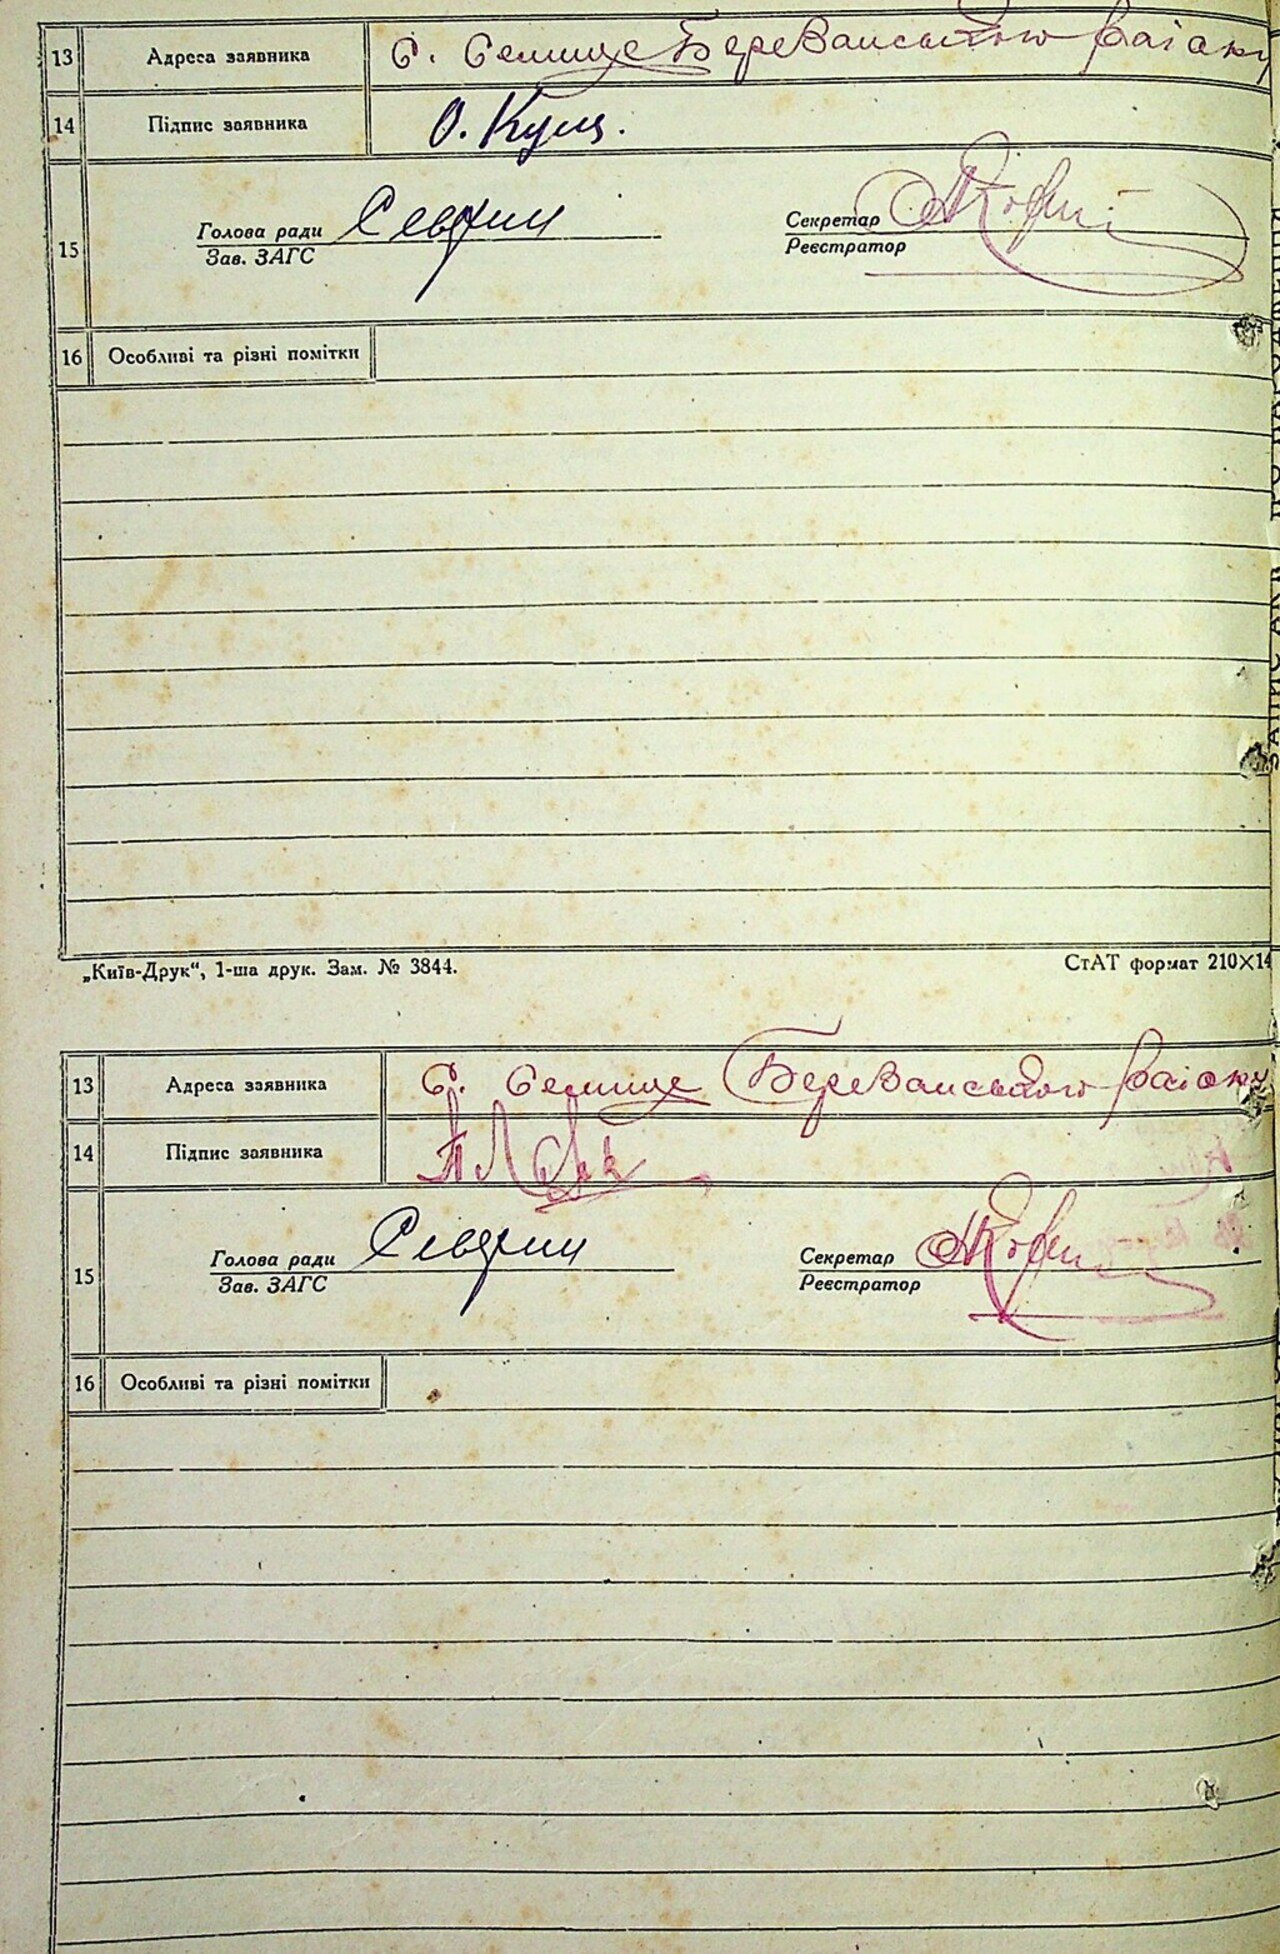 13 Адреса заявника С. Селище Березанського району
14 Підпис заявника О. Кущ.
15 Голова ради Секретар
Зав. ЗАГС Реєстратор
16 Особливі та різні помітки
„Київ-Друк“, 1-ша друк. Зам. № 3844. СтАТ формат 210×14
13 Адреса заявника С. Селище Березанського району
14 Підпис заявника
15 Голова ради Секретар
Зав. ЗАГС Реєстратор
16 Особливі та різні помітки